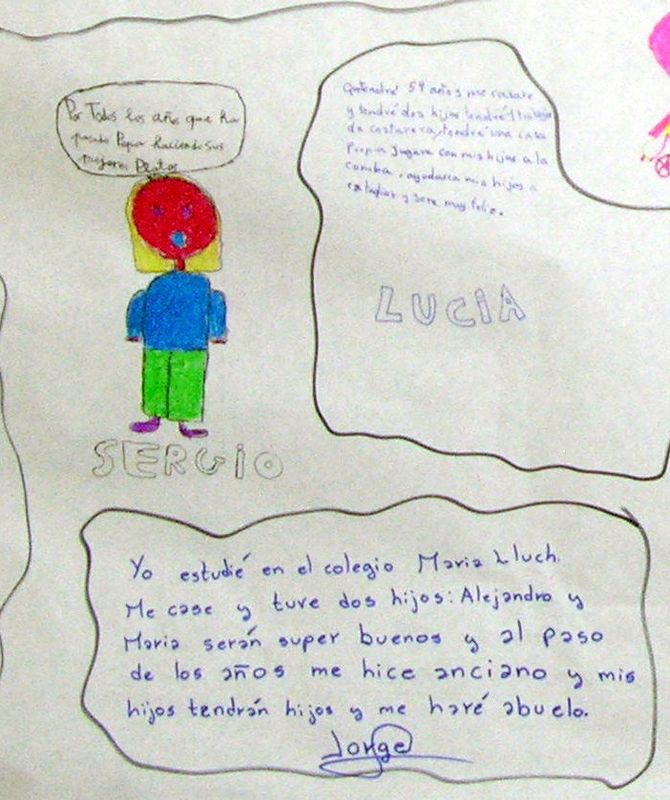 Por Todos los años que ha
pasado Papa haciendo sus
mejores Platos
SERGIO
tendre 59 años y me casare
y tendré dos hijos tendré 1 trabajo
de costurera, tendré una casa
Propia Jugare con mis hijos a la
comba, ayudare a mis hijos a
estudiar y sere muy feliz.
LUCIA
Yo estudié en el colegio Maria Lluch.
Me case y tuve dos hijos: Alejandro y
Maria serán super buenos y al paso
de los años me hice anciano y mis
hijos tendrán hijos y me haré abuelo.
Jorge